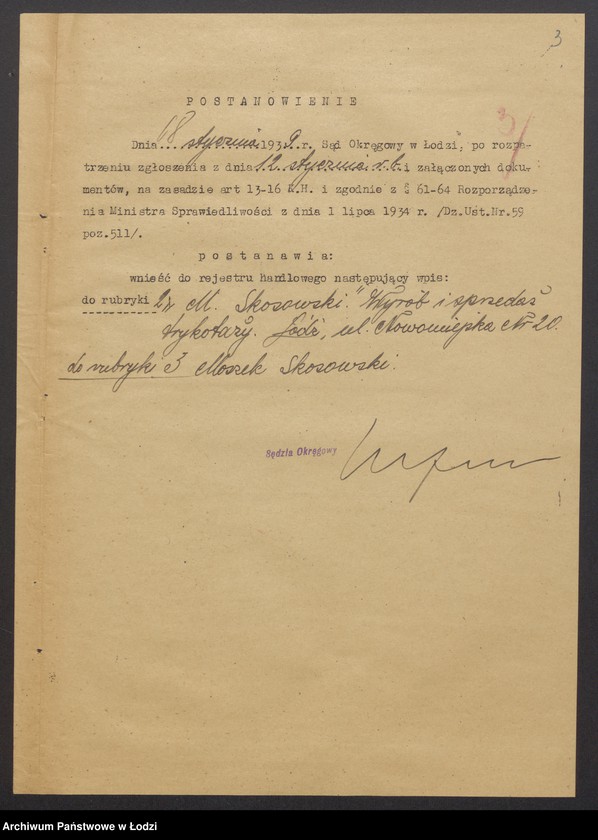 3
3/
POSTANOWIENIE
Dnia...18 stycznia 1939.r. Sąd Okręgowy w Łodzi, po rozpa-
trzeniu zgłoszenia z dnia 12 stycznia r.b. i załączonych doku-
mentów, na zasadzie art 13-16 K.H. i zgodnie z § 61-64 Rozporządze-
nia Ministra Sprawiedliwości z dnia 1 lipca 1934 r. /Dz.Ust.Nr.59
poz.511/.
postanawia:
wnieść do rejestru handlowego następujący wpis:
do rubryki 2 „M. Skosowski." Wyrób i sprzedaż
trykotaży. Łódź, ul. Nowomiejska Nr 20.
do rubryki 3 Moszek Skosowski.
Sędzia Okręgowy
Archiwum Państwowe w Łodzi